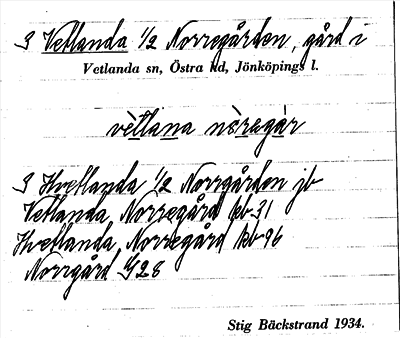 3 Vetlanda 1/2 Norregården, gård i
Vetlanda sn, Östra hd, Jönköpings l.
vètlana nòregàr
3 Hvetlanda 1/2 Norrgården jb
Vetlanda, Norregård kb 31
Hvetlanda, Norregård kb 96
Norrgård G28
Stig Bäckstrand 1934.